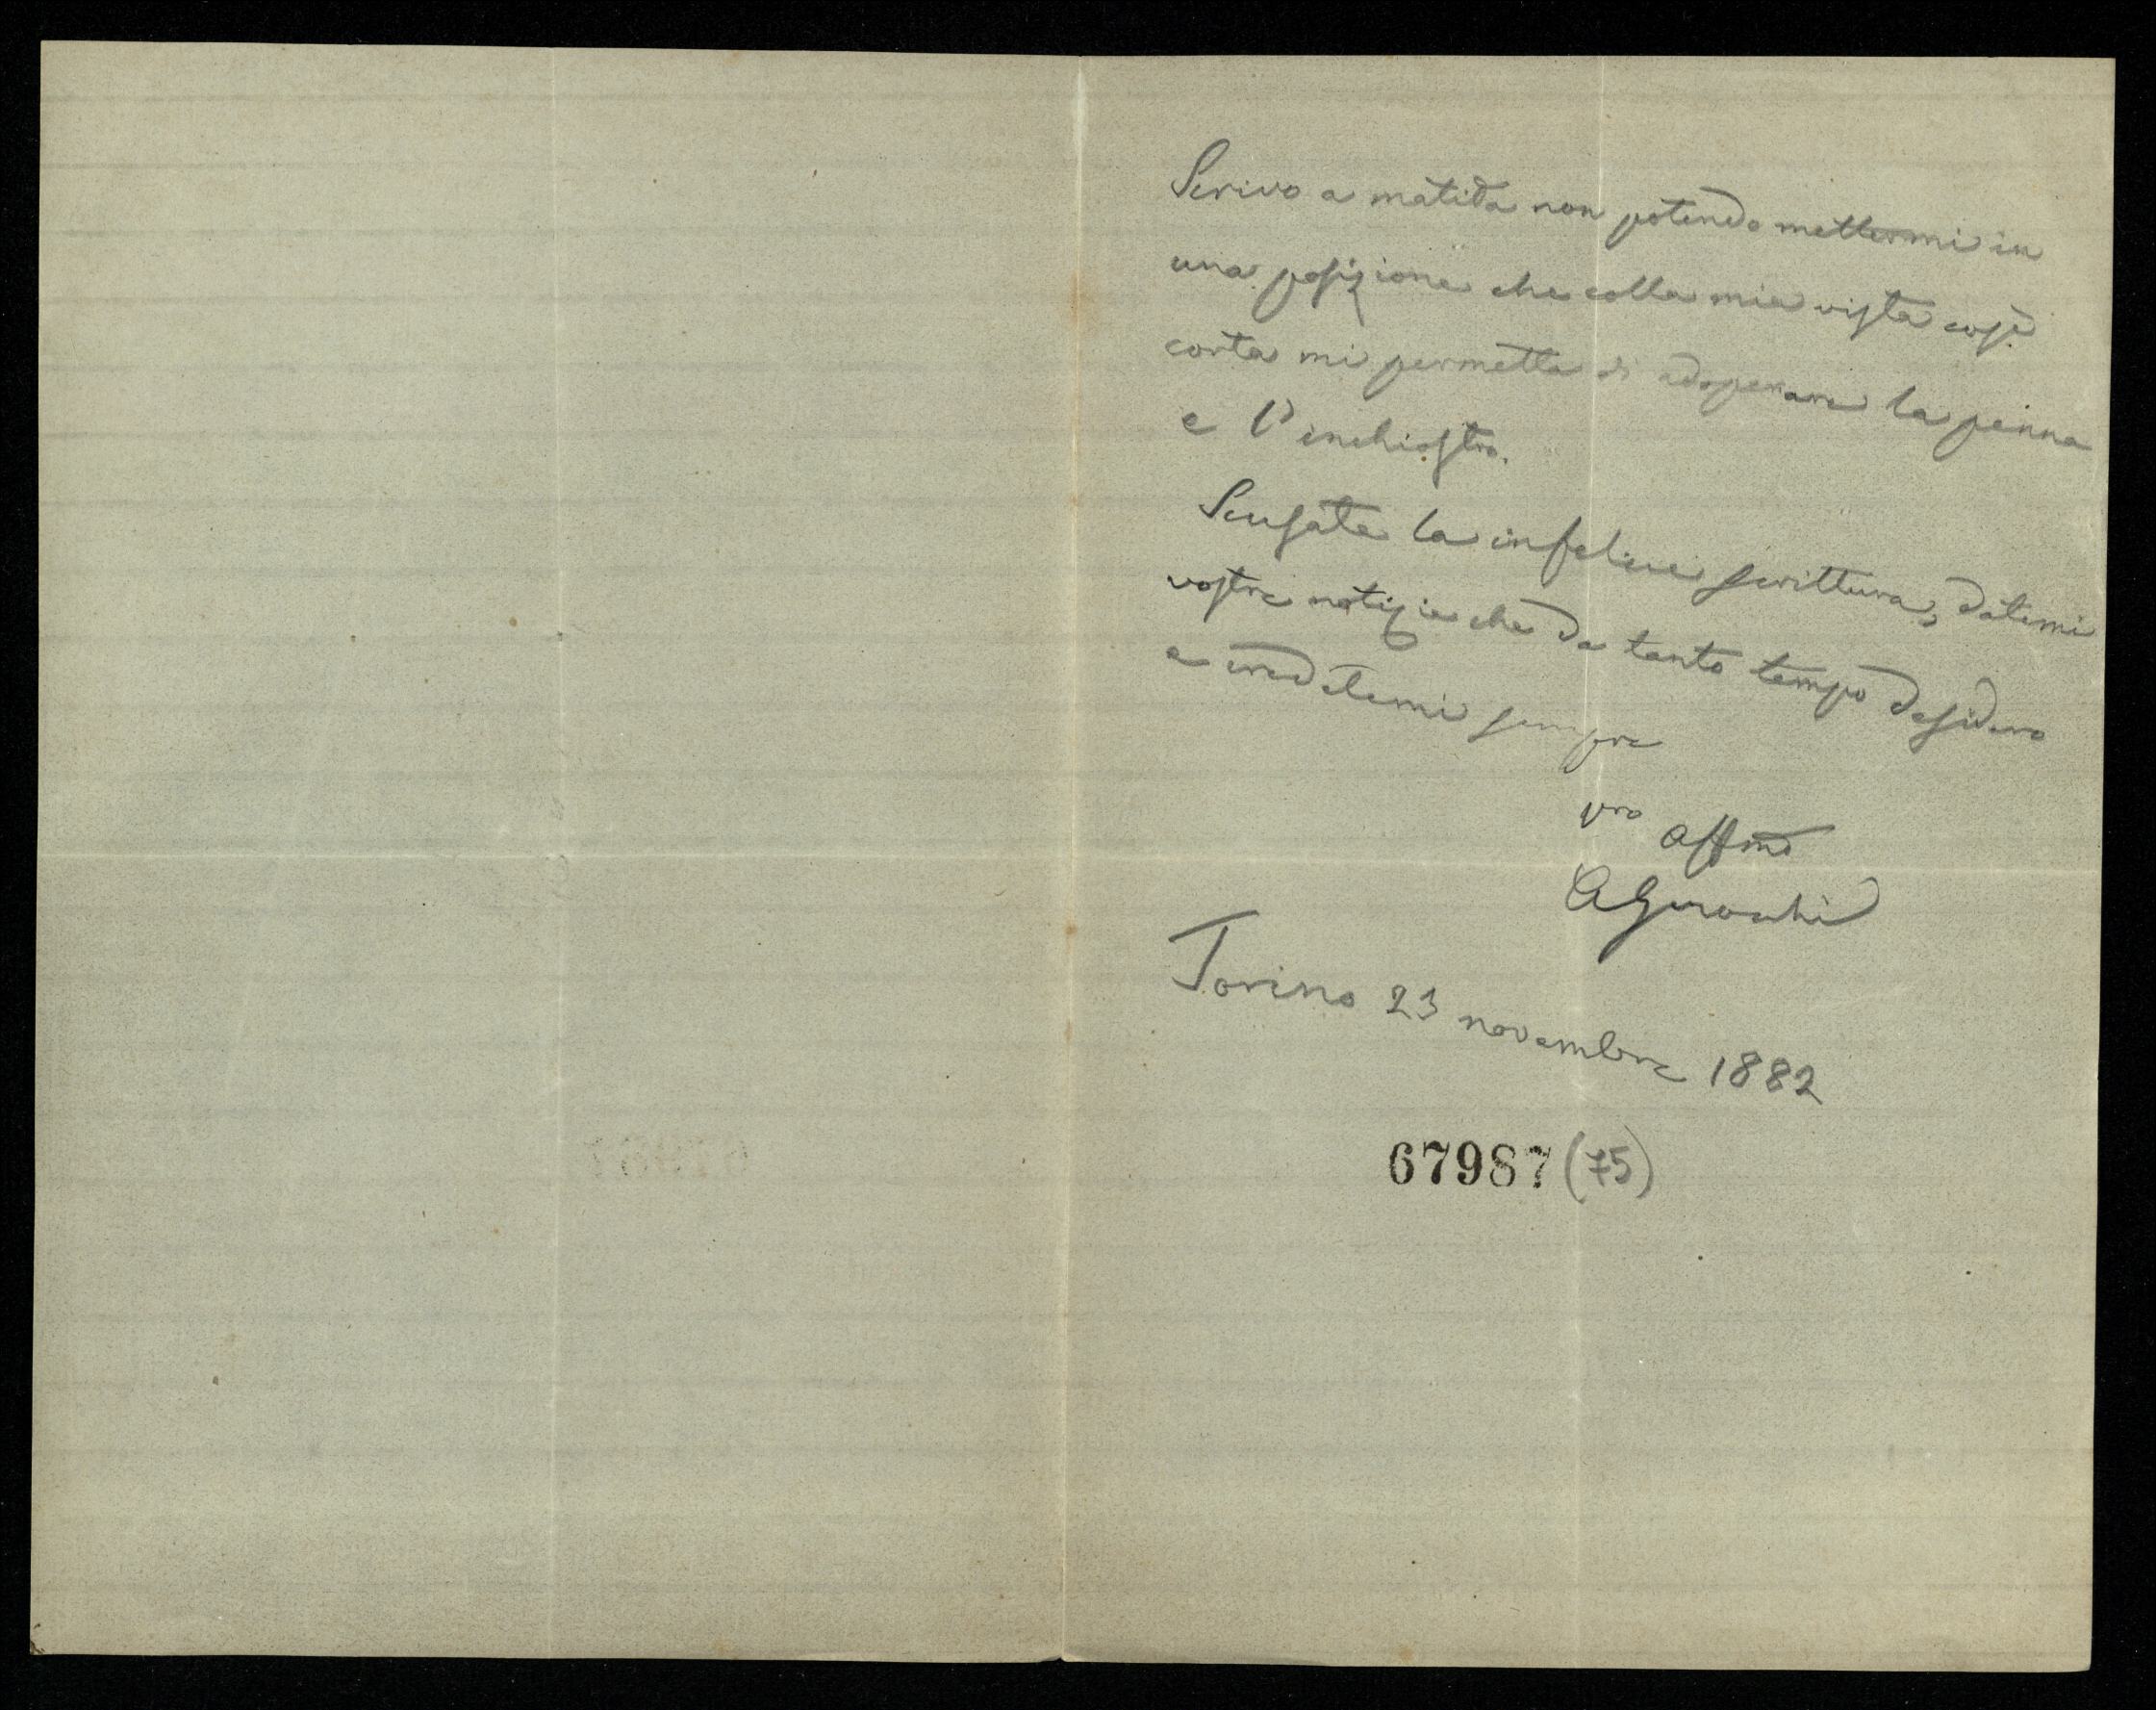 Scrivo a matita non potendo mettermi in
una posizione che colla mia vista così
corta mi permetta di adoperare la penna
e l'inchiostro.
Scusate la infelice scrittura, datemi
vostre notizie che da tanto tempo desidero
e credetemi sempre
vro affmo
AGenocchi
Torino 23 novembre 1882
67987 (75)